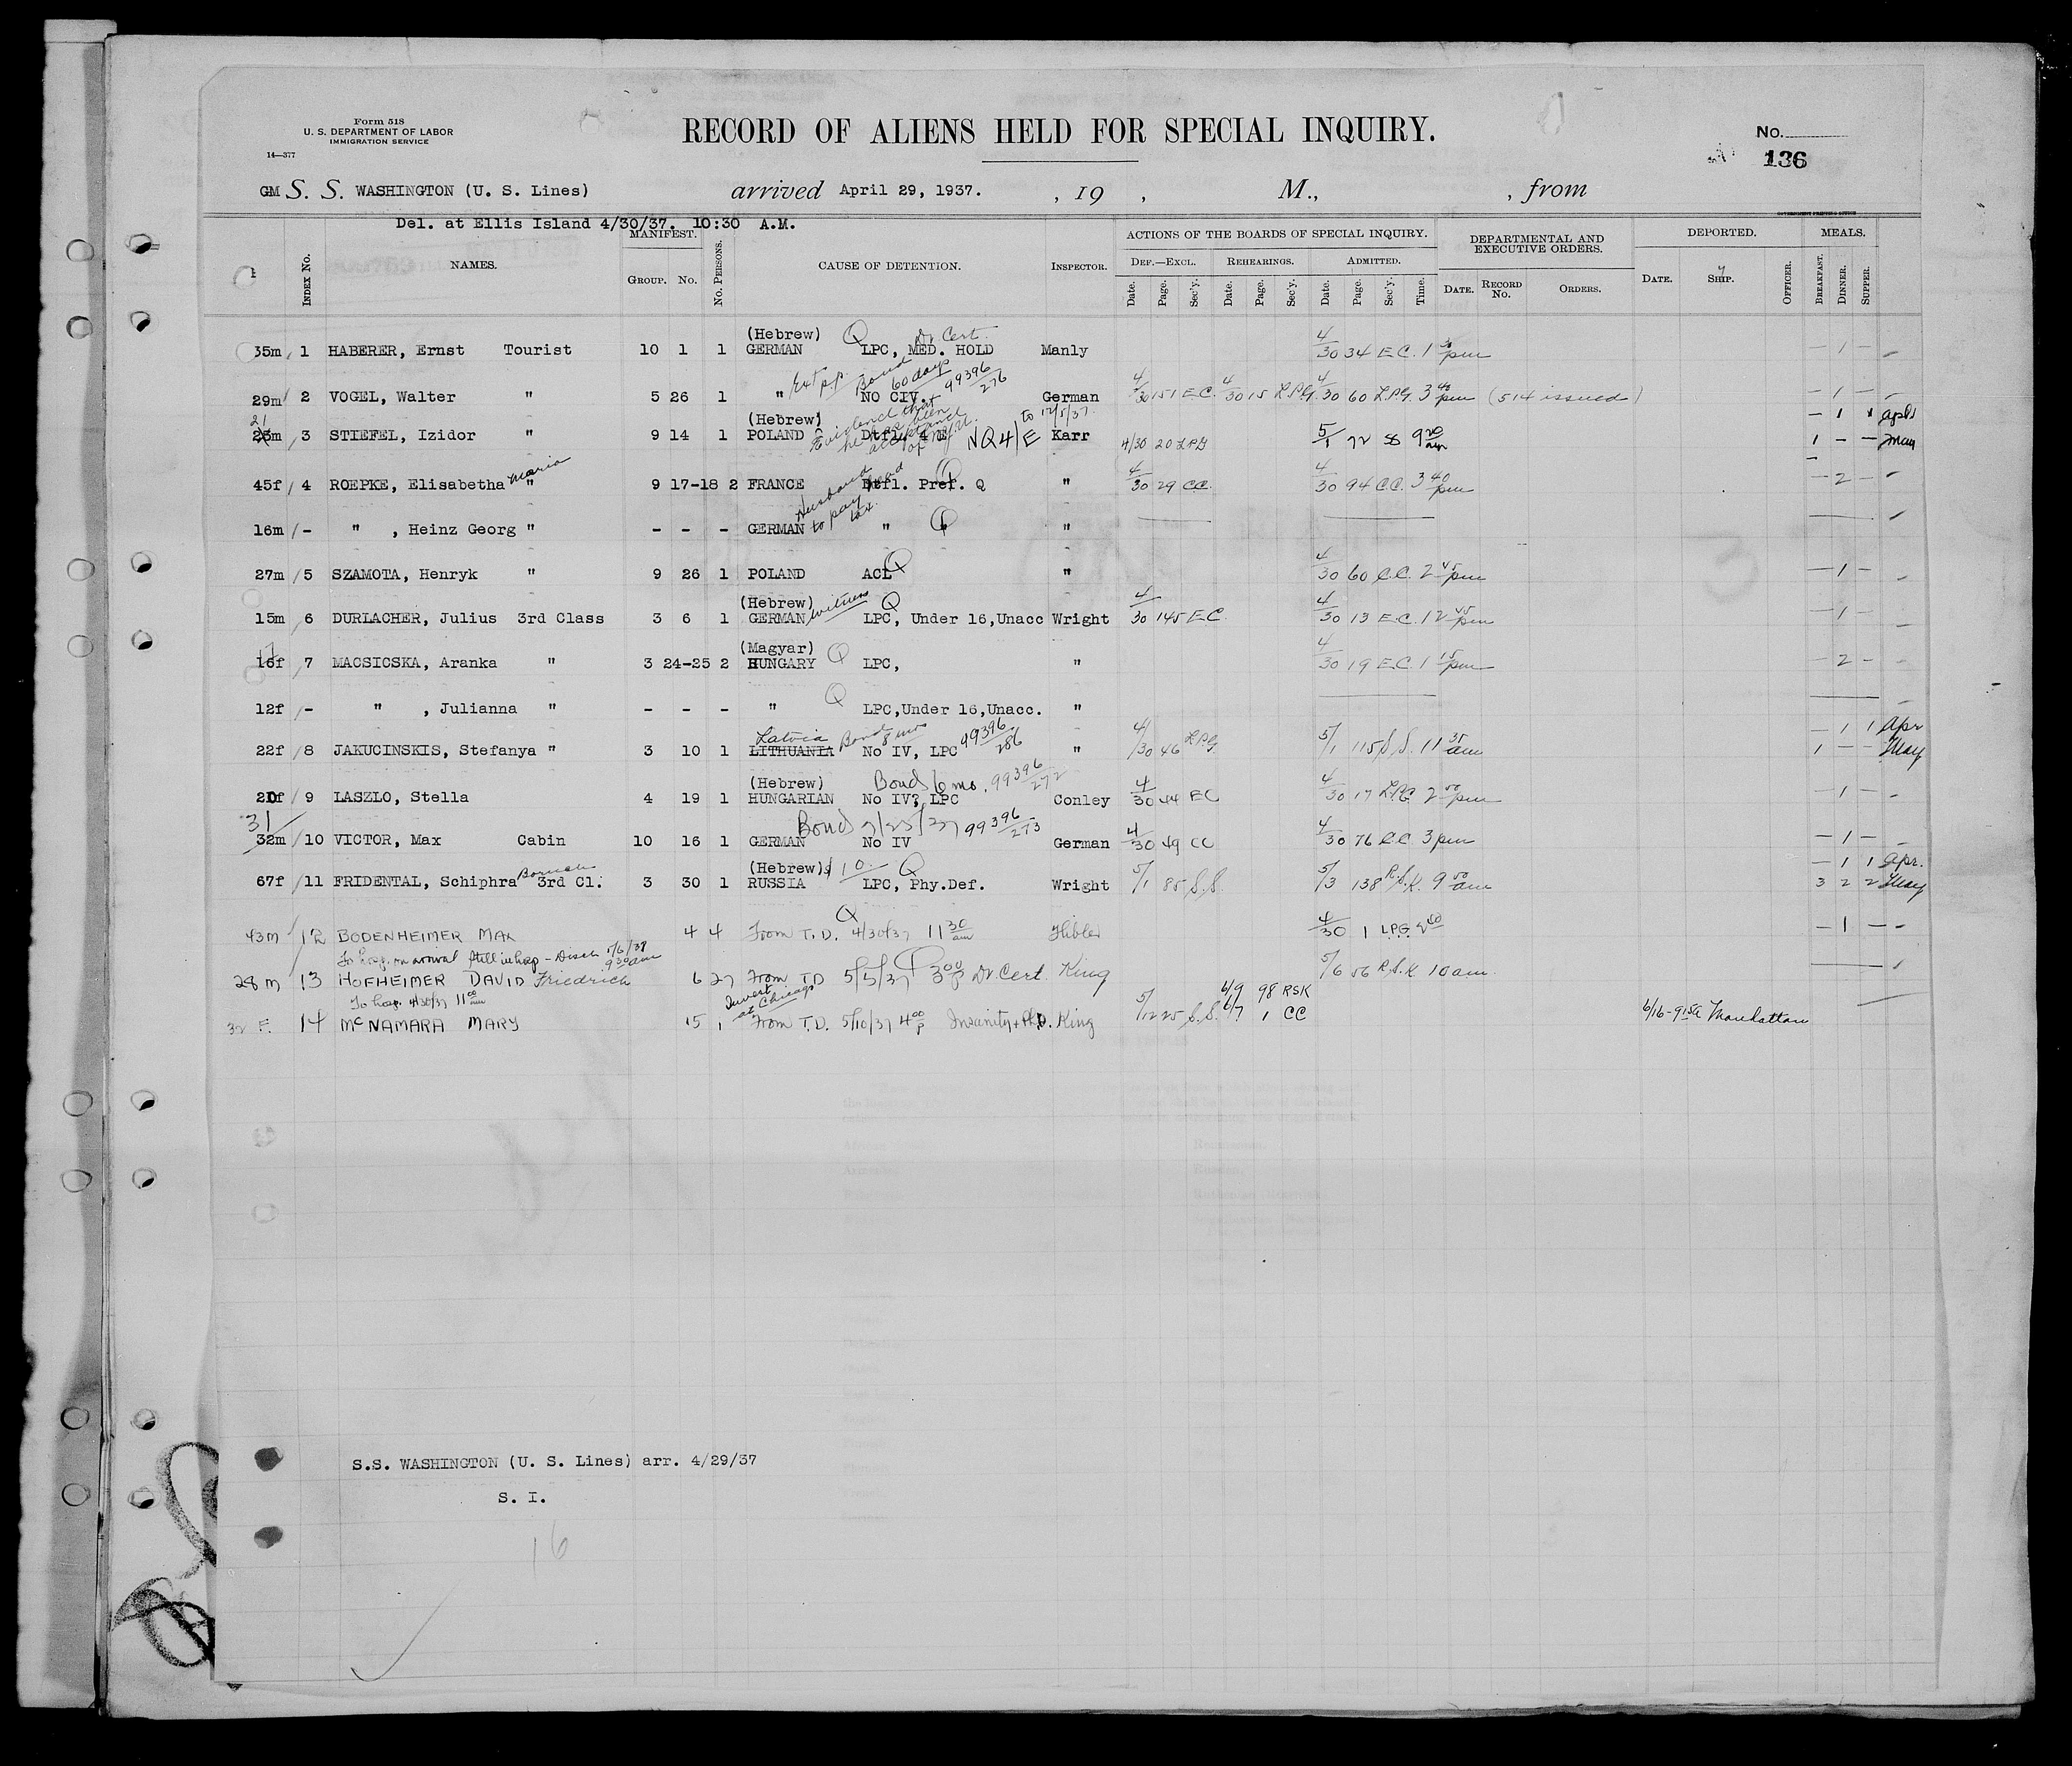 Form 518
U. S. DEPARTMENT OF LABOR
IMMIGRATION SERVICE
14—377
RECORD OF ALIENS HELD FOR SPECIAL INQUIRY.
No.
136
GM S. S. WASHINGTON (U. S. Lines) arrived April 29, 1937. , 19 , M., , from
GOVERNMENT PRINTING OFFICE
Del. at Ellis Island 4/30/37. 10:30 A.M.
INDEX NO. NAMES. MANIFEST. GROUP. NO. NO. PERSONS. CAUSE OF DETENTION. INSPECTOR. ACTIONS OF THE BOARDS OF SPECIAL INQUIRY. DEPARTMENTAL AND EXECUTIVE ORDERS. DEPORTED. MEALS.
DEF.—EXCL. REHEARINGS. ADMITTED.
Date. Page. Sec'y. Date. Page. Sec'y. Date. Page. Sec'y. Time. DATE. RECORD NO. ORDERS. DATE. SHIP. OFFICER. BREAKFAST. DINNER. SUPPER.
(Hebrew) Q Dr Cert.
35m 1 HABERER, Ernst Tourist 10 1 1 GERMAN LPC, MED. HOLD Manly 4/30 34 E.C. 1 30 pm — 1 —
Ext p.p. Bond 60 days 99396/276
29m 2 VOGEL, Walter " 5 26 1 " NO CIV. German 4/30 151 E.C. 4/30 15 L.P.G. 4/30 60 L.P.G. 3 40 pm (514 issued) — 1 — —
21 (Hebrew) Evidence that he has been acceptance of N.Y.U. to 12/5/37. — 1 1 April
23m 3 STIEFEL, Izidor " 9 14 1 POLAND Dtfl. 4 E NQ4/E Karr 4/30 20 LPG 5/1 72 SS 9 20 am 1 — — May
Maria Husband to pay head tax.
45f 4 ROEPKE, Elisabetha " 9 17-18 2 FRANCE Dtfl. Pref. Q " 4/30 29 C.C. 4/30 94 C.C. 3 40 pm — 2 —
16m - " , Heinz Georg " - - - GERMAN " Q "
27m 5 SZAMOTA, Henryk " 9 26 1 POLAND ACL Q " 4/30 60 C.C. 2 45 pm — 1 —
(Hebrew) Witness Q
15m 6 DURLACHER, Julius 3rd Class 3 6 1 GERMAN LPC, Under 16,Unacc Wright 4/30 145 E.C. 4/30 13 E.C. 12 45 pm — 1 —
17 (Magyar)
16f 7 MACSICSKA, Aranka " 3 24-25 2 HUNGARY Q LPC, " 4/30 19 E.C. 1 15 pm — 2 —
12f - " , Julianna " - - - " Q LPC,Under 16,Unacc. "
Latvia Bond 8 mo 99396/286 — 1 1 Apr
22f 8 JAKUCINSKIS, Stefanya " 3 10 1 LITHUANIA No IV, LPC " 4/30 46 L.P.G. 5/1 115 S.S. 11 35 am 1 — — May
(Hebrew) Bond 6 mo. 99396/272
20f 9 LASZLO, Stella 4 19 1 HUNGARIAN No IV, LPC Conley 4/30 44 EC 4/30 17 L.P.G. 2 00 pm — 1 —
31 Bond 7/25/37 99396/273
32m 10 VICTOR, Max Cabin 10 16 1 GERMAN No IV German 4/30 49 CC 4/30 76 C.C. 3 pm — 1 —
Boruch (Hebrew) $10. Q — 1 1 Apr.
67f 11 FRIDENTAL, Schiphra 3rd Cl. 3 30 1 RUSSIA LPC, Phy.Def. Wright 5/1 85 S.S. 5/3 138 R.S.K. 9 00 am 3 2 2 May
Q
43m 12 BODENHEIMER MAX 4 4 From T.D. 4/30/37 11 30 am Hibler 4/30 1 LPG 2 00 — 1 — —
To hosp. on arrival Still in hosp - Disch 5/6/37 9 30 am
28m 13 HOFHEIMER DAVID Friedrich 6 27 From TD 5/5/37 3 00 p Dr. Cert. King 5/6 56 R.S.K 10 am.
To hosp. 4/30/37 11 00 am Invest at Chicago 6/9 98 RSK
32 F. 14 McNAMARA MARY 15 1 From T.D. 5/10/37 4 00 p Insanity + Ph.D. King 5/12 25 S.S. 6/7 1 CC 6/16-9 15a Manhattan
S.S. WASHINGTON (U. S. Lines) arr. 4/29/37
S. I.
16